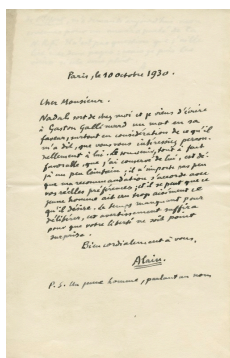 Paris, le 10 octobre 1930.
Cher Monsieur.
Nadal sort de chez moi et je viens d'écrire
à Gaston Gallimard un mot en sa
faveur, surtout en considération de ce qu'il
m'a dit, que vous vous intéressiez person-
nellement à lui. Le souvenir, tout à fait
favorable, que j'ai conservé de lui, est dé-
jà un peu lointain; il m'importe un peu
que ma recommandation s'accorde avec
vos réelles préférences; et il se peut que ce
jeune homme ait cru trop aisément ce
qu'il désire. Le temps manquant pour
délibérer, cet avertissement suffira
pour que votre liberté ne soit point
surprise.
Bien cordialement à vous.
Alain.
P.S. Un jeune homme, parlant au nom